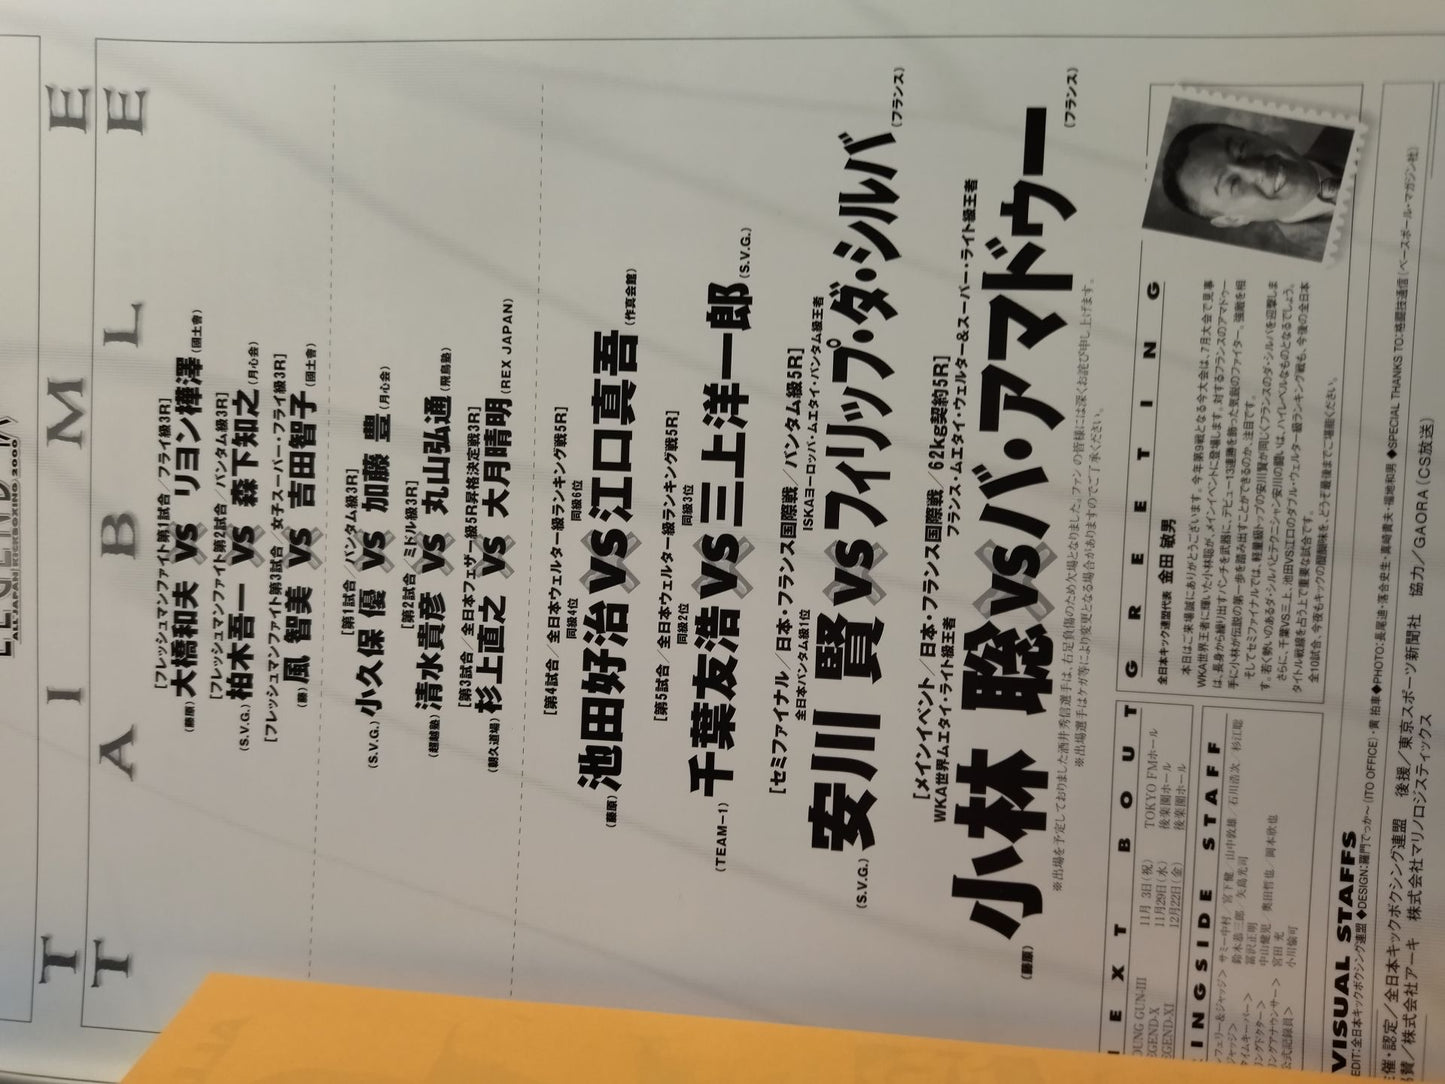 ALL JAPAN KICKBOXING 2000
T I M E
T A B L E
[フレッシュマンファイト第1試合/フライ級3R]
(藤原) 大橋和夫 vs リヨン樺澤 (國士會)
[フレッシュマンファイト第2試合/バンタム級3R]
(S.V.G.) 柏木吾一 vs 森下知之 (月心会)
[フレッシュマンファイト第3試合/女子スーパー・フライ級3R]
(藤) 風 智美 vs 吉田智子 (國士會)
[第1試合/バンタム級3R]
(S.V.G.) 小久保 優 vs 加藤 豊 (月心会)
[第2試合/ミドル級3R]
(超越塾) 清水貴彦 vs 丸山弘通 (飛鳥塾)
[第3試合/全日本フェザー級5R昇格決定戦3R]
(朝久道場) 杉上直之 vs 大月晴明 (REX JAPAN)
[第4試合/全日本ウェルター級ランキング戦5R]
同級4位 同級6位
(藤原) 池田好治 vs 江口真吾 (作真会館)
[第5試合/全日本ウェルター級ランキング戦5R]
同級2位 同級3位
(TEAM-1) 千葉友浩 vs 三上洋一郎 (S.V.G.)
[セミファイナル/日本・フランス国際戦/バンタム級5R]
全日本バンタム級1位 ISKAヨーロッパ・ムエタイ・バンタム級王者
(S.V.G.) 安川 賢 vs フィリップ・ダ・シルバ (フランス)
[メインイベント/日本・フランス国際戦/62kg契約5R]
WKA世界ムエタイ・ライト級王者 フランス・ムエタイ・ウェルター&スーパー・ライト級王者
(藤原) 小林 聡 vs バ・アマドゥー (フランス)
※出場を予定しておりました酒井秀信選手は、右足負傷のため欠場となりました。ファンの皆様には深くお詫び申し上げます。
※出場選手はケガ等により変更となる場合がありますのでご了承ください。
E X T B O U T
OUNG GUN-III 11月 3日(祝) TOKYO FMホール
EGEND-X 11月29日(水) 後楽園ホール
EGEND-XI 12月22日(金) 後楽園ホール
INGSIDE STAFF
フェリー&ジャッジ> サミー中村/宮下健/山中敦雄/石川浩次/杉江聡
ジャッジ> 鈴木恭三郎/矢島光司
タイムキーパー> 富沢正明
ングドクター> 中山健児/奥田哲也/岡本欣也
ングアナウンサー> 宮田 充
公式記録員> 小川愉可
G R E E T I N G
全日本キック連盟代表 金田 敏男
本日はご来場誠にありがとうございます。今年第9戦となる今大会は、7月大会で見事
WKA世界王者に輝いた小林聡が、メインイベントに登場します。対するフランスのアマドゥー
は、長身から繰り出すパンチを武器に、デビュー13連勝を飾った気鋭のファイター。強敵を相
手に小林が伝説の第一歩を踏み出すことができるのか、注目です。
そしてセミファイナルでは、軽量級トップの安川賢が同じくフランスのダ・シルバを迎撃しま
す。若く勢いのあるダ・シルバとテクニシャン安川の闘いは、ハイレベルなものとなるでしょう。
さらに、千葉VS三上、池田VS江口のダブル・ウェルター級ランキング戦も、今後の全日本
タイトル戦線を占う上で重要な試合です。
全10試合、今夜もキックの醍醐味を、どうぞ最後までご堪能ください。
VISUAL STAFFS
EDIT:全日本キックボクシング連盟 ◆DESIGN:羅門でっか〜(ITO OFFICE)・黄 拍車◆PHOTO:長尾迪・落合史生・真崎貴夫・堀地和男 ◆SPECIAL THANKS TO:格闘技通信(ベースボール・マガジン社)
催・認定/全日本キックボクシング連盟 後援/東京スポーツ新聞社 協力/GAORA(CS放送)
賛/株式会社アーキ 株式会社マリノロジスティックス